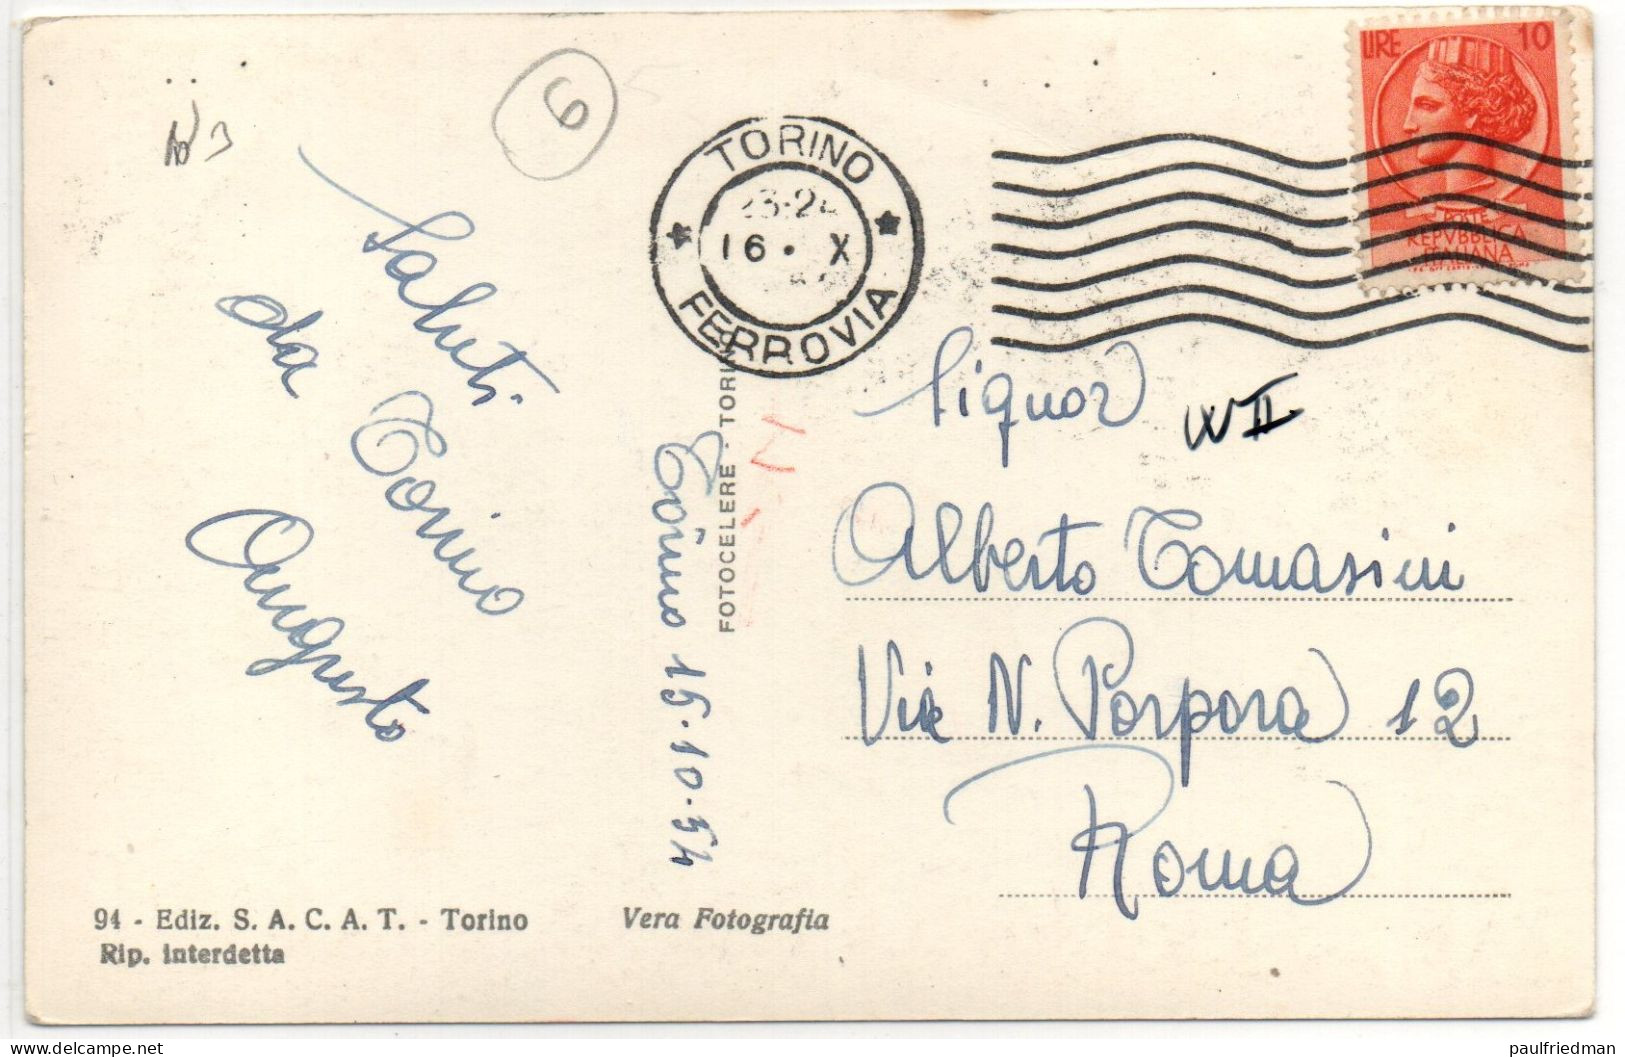 6
LIRE 10
POSTE
REPVBBLICA
ITALIANA
TORINO
23-24
16 · X
FERROVIA
Saluti
da Torino
Augusto
Torino 15·10·54
FOTOCELERE - TORI
Signor
W II
Alberto Tomasini
Via N. Porpora 12
Roma
94 - Ediz. S. A. C. A. T. - Torino
Rip. interdetta
Vera Fotografia
delcampe.net
paulfriedman